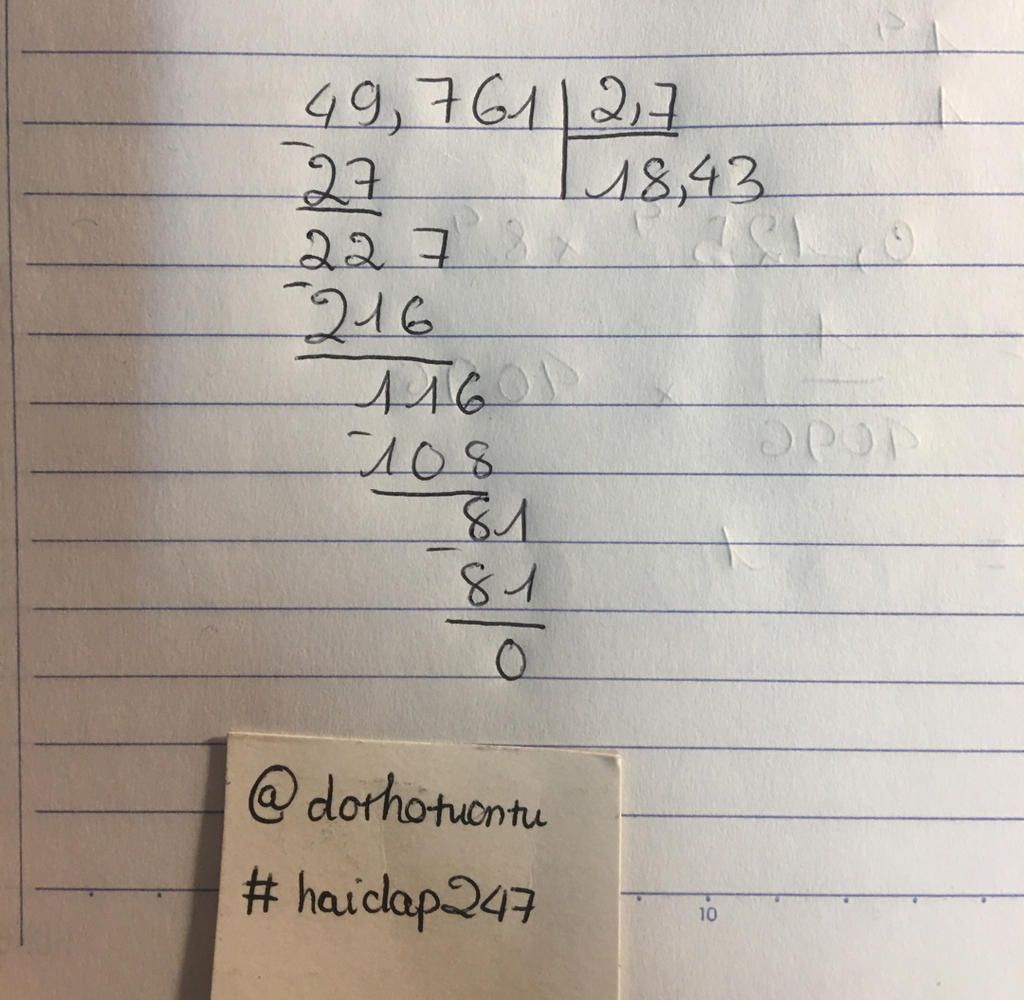 49,761 2,7
- 27 18,43
227
- 216
116
- 108
81
- 81
0
@dothotuontu
# haidap247
10